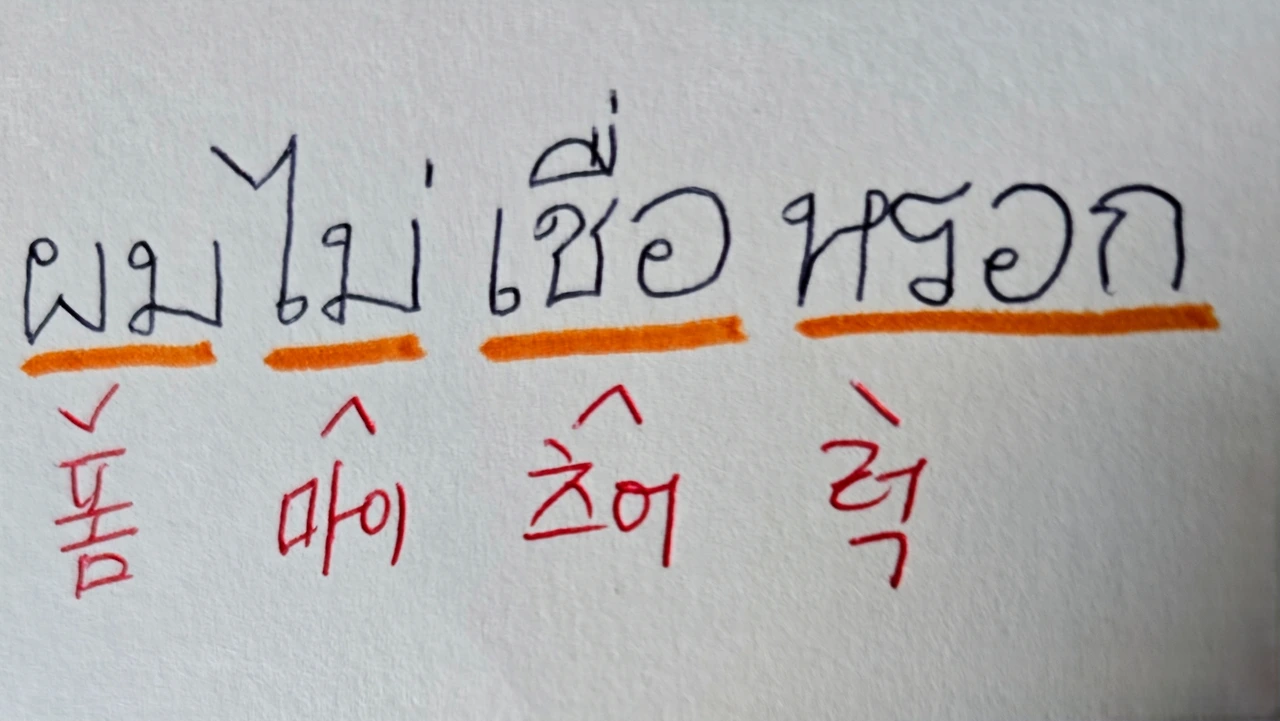 ผมไม่เชื่อหรอก
폼 마이 츠어 럭